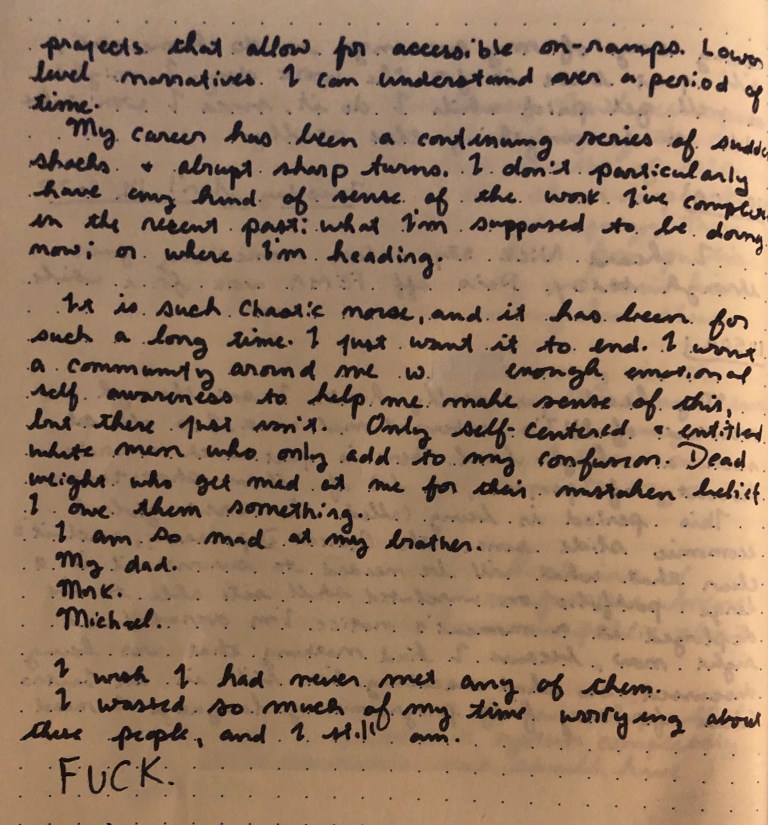 projects that allow for accessible on-ramps. Lower
level narratives I can understand over a period of
time.
My career has been a continuing series of sudde
shocks + abrupt sharp turns. I don't particularly
have any kind of sense of the work I've complet
in the recent past; what I'm supposed to be doing
now; or where I'm heading.
It is such chaotic noise, and it has been for
such a long time. I just want it to end. I want
a community around me w. enough emotional
self awareness to help me make sense of this,
but there just isn't. Only self-centered & entitled
white men who only add to my confusion. Dead
weight who get mad at me for their mistaken belief
I owe them something.
I am so mad at my brother.
My dad.
Mark.
Michael.
I wish I had never met any of them.
I wasted so much of my time worrying about
these people, and I still am.
FUCK.